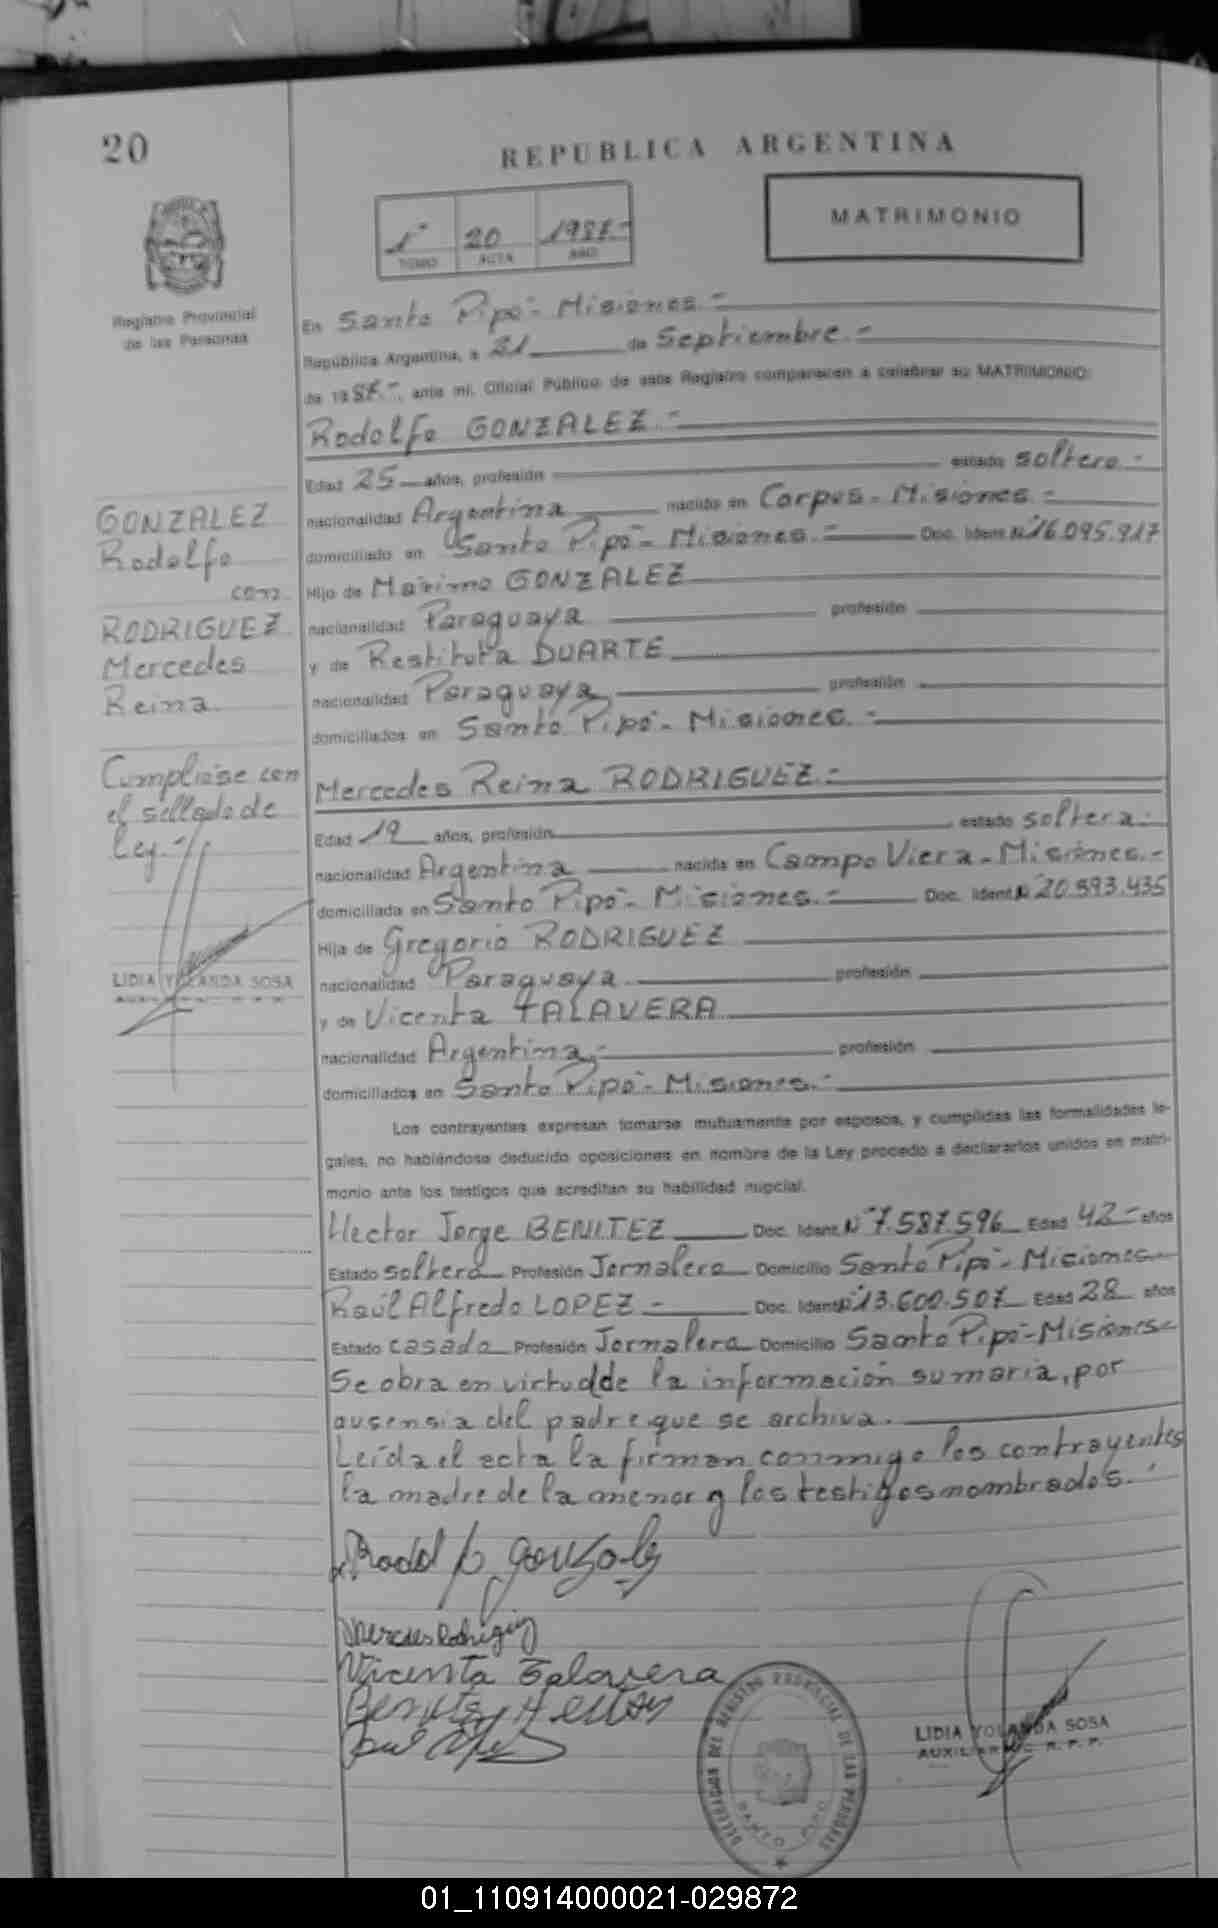 20
REPUBLICA ARGENTINA
1° 20 1987.-
TOMO ACTA AÑO
MATRIMONIO
Registro Provincial
de las Personas
En Santo Pipó - Misiones.-
República Argentina, a 21 de Septiembre.-
de 1987.-, ante mi, Oficial Público de este Registro comparecen a celebrar su MATRIMONIO:
Rodolfo GONZALEZ.-
Edad 25 años, profesión estado soltero.-
nacionalidad Argentina nacido en Corpus - Misiones.-
domiciliado en Santo Pipó - Misiones.- Doc. Ident. N° 16.095.917
Hijo de Maximo GONZALEZ
nacionalidad Paraguaya profesión
y de Restituta DUARTE
nacionalidad Paraguaya profesión
domiciliados en Santo Pipó - Misiones.-
Mercedes Reina RODRIGUEZ.-
Edad 19 años, profesión estado soltera.-
nacionalidad Argentina nacida en Campo Viera - Misiones.-
domiciliada en Santo Pipó - Misiones.- Doc. Ident. N° 20.593.435
Hija de Gregorio RODRIGUEZ
nacionalidad Paraguaya profesión
y de Vicenta TALAVERA
nacionalidad Argentina.- profesión
domiciliados en Santo Pipó - Misiones.-
Los contrayentes expresan tomarse mutuamente por esposos, y cumplidas las formalidades le-
gales, no habiéndose deducido oposiciones en nombre de la Ley procedo a declararlos unidos en matri-
monio ante los testigos que acreditan su habilidad nupcial.
Hector Jorge BENITEZ Doc. Ident. N° 7.587.596 Edad 42 - años
Estado soltero Profesión Jornalero Domicilio Santo Pipó - Misiones
Raúl Alfredo LOPEZ - Doc. Ident. N° 13.600.507 Edad 28 años
Estado casado Profesión Jornalero Domicilio Santo Pipó - Misiones
Se obra en virtud de la información sumaria, por
ausensia del padre que se archiva.
Leída el acta la firman conmigo los contrayentes
la madre de la menor y los testigos nombrados.-
Rodolfo Gonzalez
Mercedes Rodriguez
Vicenta Talavera
Benitez Hector
GONZALEZ
Rodolfo
con
RODRIGUEZ
Mercedes
Reina
Cumpliose con
el sellado de
Ley.-
LIDIA YOLANDA SOSA
LIDIA YOLANDA SOSA
AUXILIAR R. P. P.
DELEGACION DEL REGISTRO PROVINCIAL DE LAS PERSONAS
SANTO PIPO
01_110914000021-029872